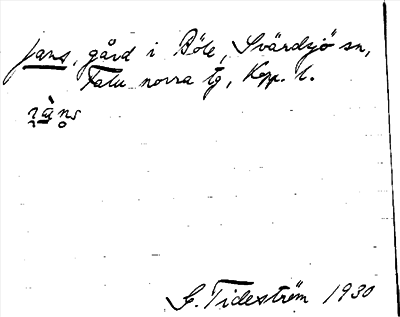 Jans, gård i Böle, Svärdsjö sn,
Falu norra tg, Kopp. l.
G. Tideström 1930